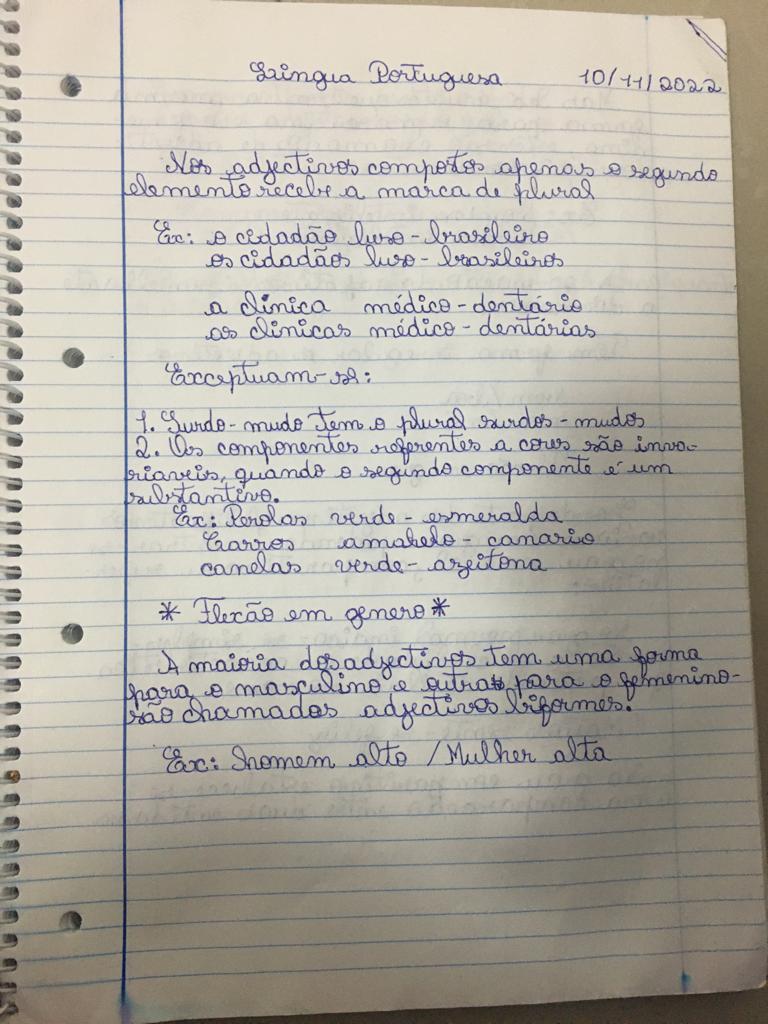 Lingua Portuguesa 10/11/2022
Nos adjectivos compostos apenas o segundo
elemento recebe a marca de plural
Ex: o cidadão luso-brasileiro
os cidadãos luso-brasileiros
a clinica médico-dentário
as clinicas médico-dentárias
Exceptuam-se:
1. Surdo-mudo tem o plural surdos-mudos
2. Os componentes referentes a cores são inva-
riaveis, quando o segundo componente é um
substantivo.
Ex: Perolas verde-esmeralda
Carros amarelo-canario
canelas verde-azeitona
* Flexão em genero *
A maioria dos adjectivos tem uma forma
para o masculino e outra para o femenino-
são chamados adjectivos biformes.
Ex: homem alto / Mulher alta